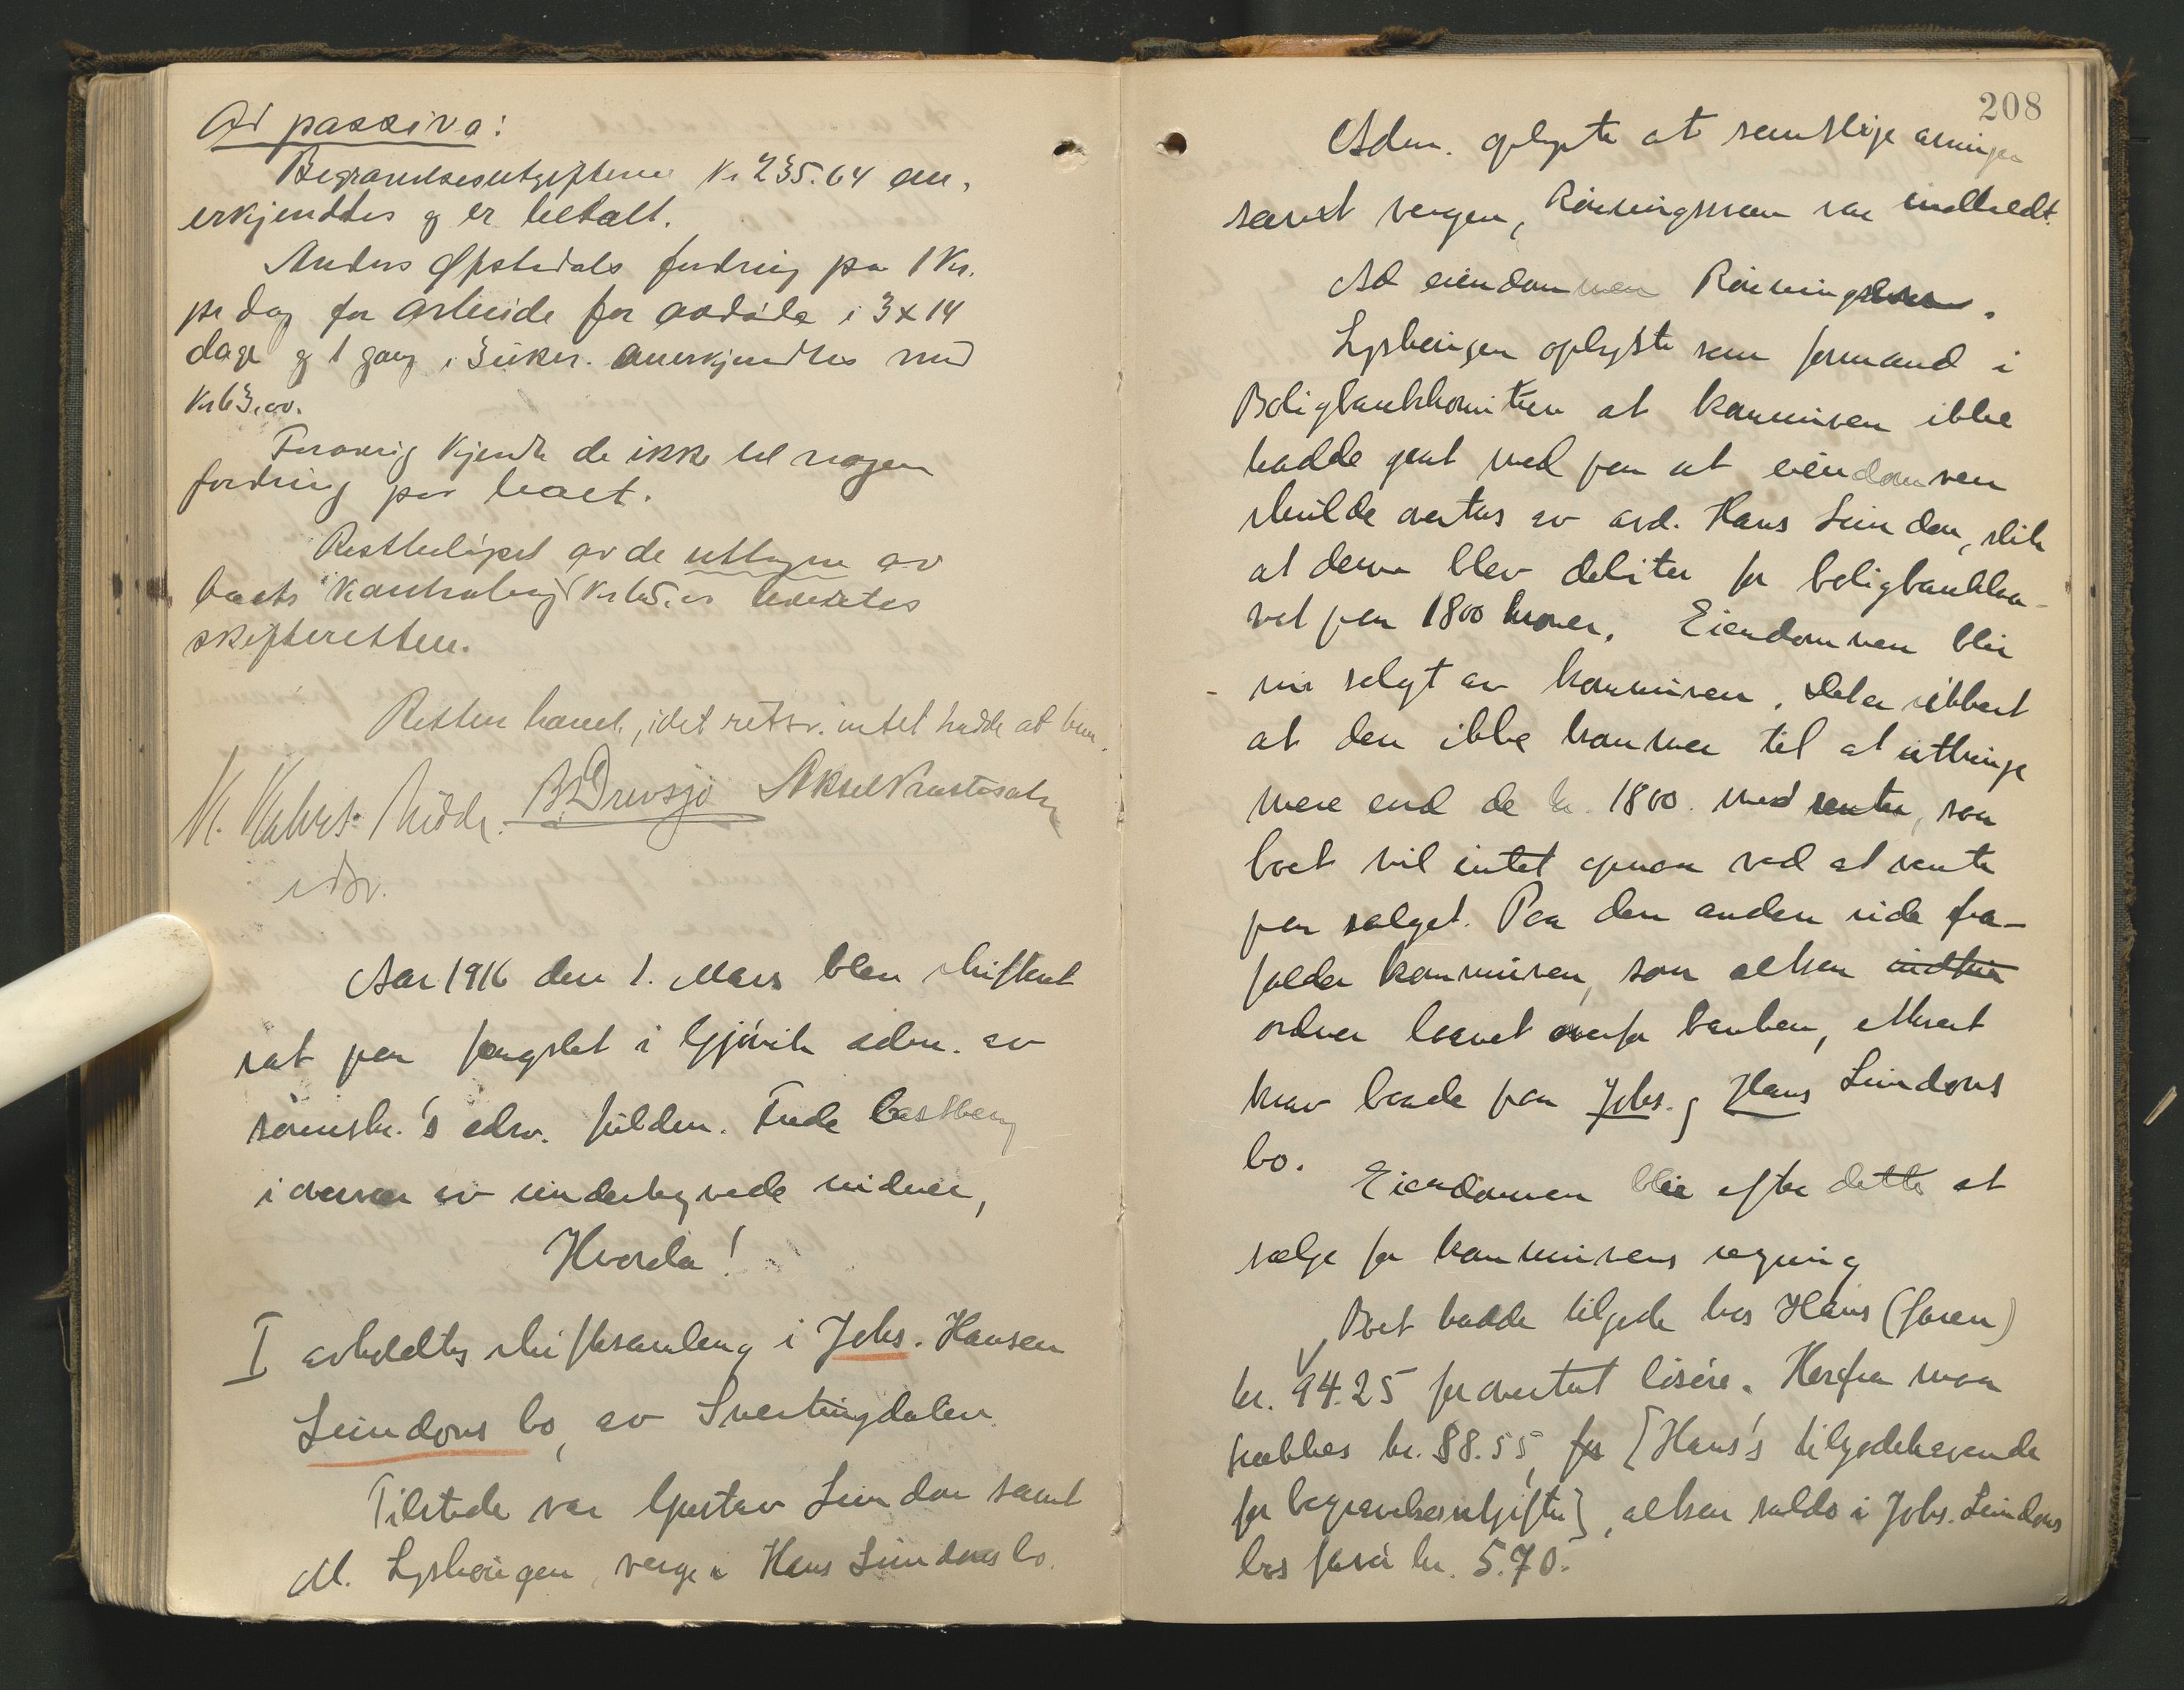 Ad passiva:
Begravelsesutgifterne Kr 235.64 an-
erkjendtes og er betalt.
Anders Øpstedals fordring på 1 Kr.
pr dag for arbeide for avdøde i 3x14
dage og 1 gang i 3 uker. anerkjendtes med
Kr 63,00.
Forøvrig kjendte de ikke til nogen
fordring på boet.
Restbeløpet av de uttagne av
boets Kr 65,00 leveretes
skifteretten.
Retten hævet, idet retsv. intet hadde at bem.
B. Drevsjø Aksel
Aar 1916 den 1. Mars blev skifteret
sat paa fængslet i Gjøvik adm. av
sorenskr.'s edsv. fuldm. Frede Castberg
i overvær av undertegnede vidner,
Hvorda!
I avholdtes skiftesamling i Johs. Hansen
Lundons bo, av Snertingdalen.
Tilstede var Gustav Lundon samt
M. Lyshaugen, verge i Hans Lundons bo.
208
Adm. oplyste at samtlige arvinger
samt vergen, Røiningsmoen var indkaldt.
Ad eiendommen
Lyshaugen oplyste som formand i
Boligbankkomiteen at kommunen ikke
hadde gaat med paa at eiendommen
skulde overtas av avd. Hans Lundon, slik
at denne blev debiter for boligbanklaa-
net paa 1800 kroner. Eiendommen blir
nu solgt av kommunen. Det er sikkert
at den ikke kommer til at utbringe
mere end de kr. 1800 med renter, saa
boet vil intet opnaa ved at vente
paa salget. Paa den anden side fra-
falder kommunen, som altsaa
ordner laanet overfor banken, ethvert
krav baade paa Johs. og Hans Lundons
bo.
Eiendommen blir efter dette at
sælge for kommunens regning
Boet hadde tilgode hos Hans (faren)
kr. 94.25 for overtat løsøre. Herfra maa
trækkes kr. 88.55, for [Hans's tilgodehavende
for begravelsesutgifter], altsaa saldo i Johs. Lundons
bos favør kr. 5.70.